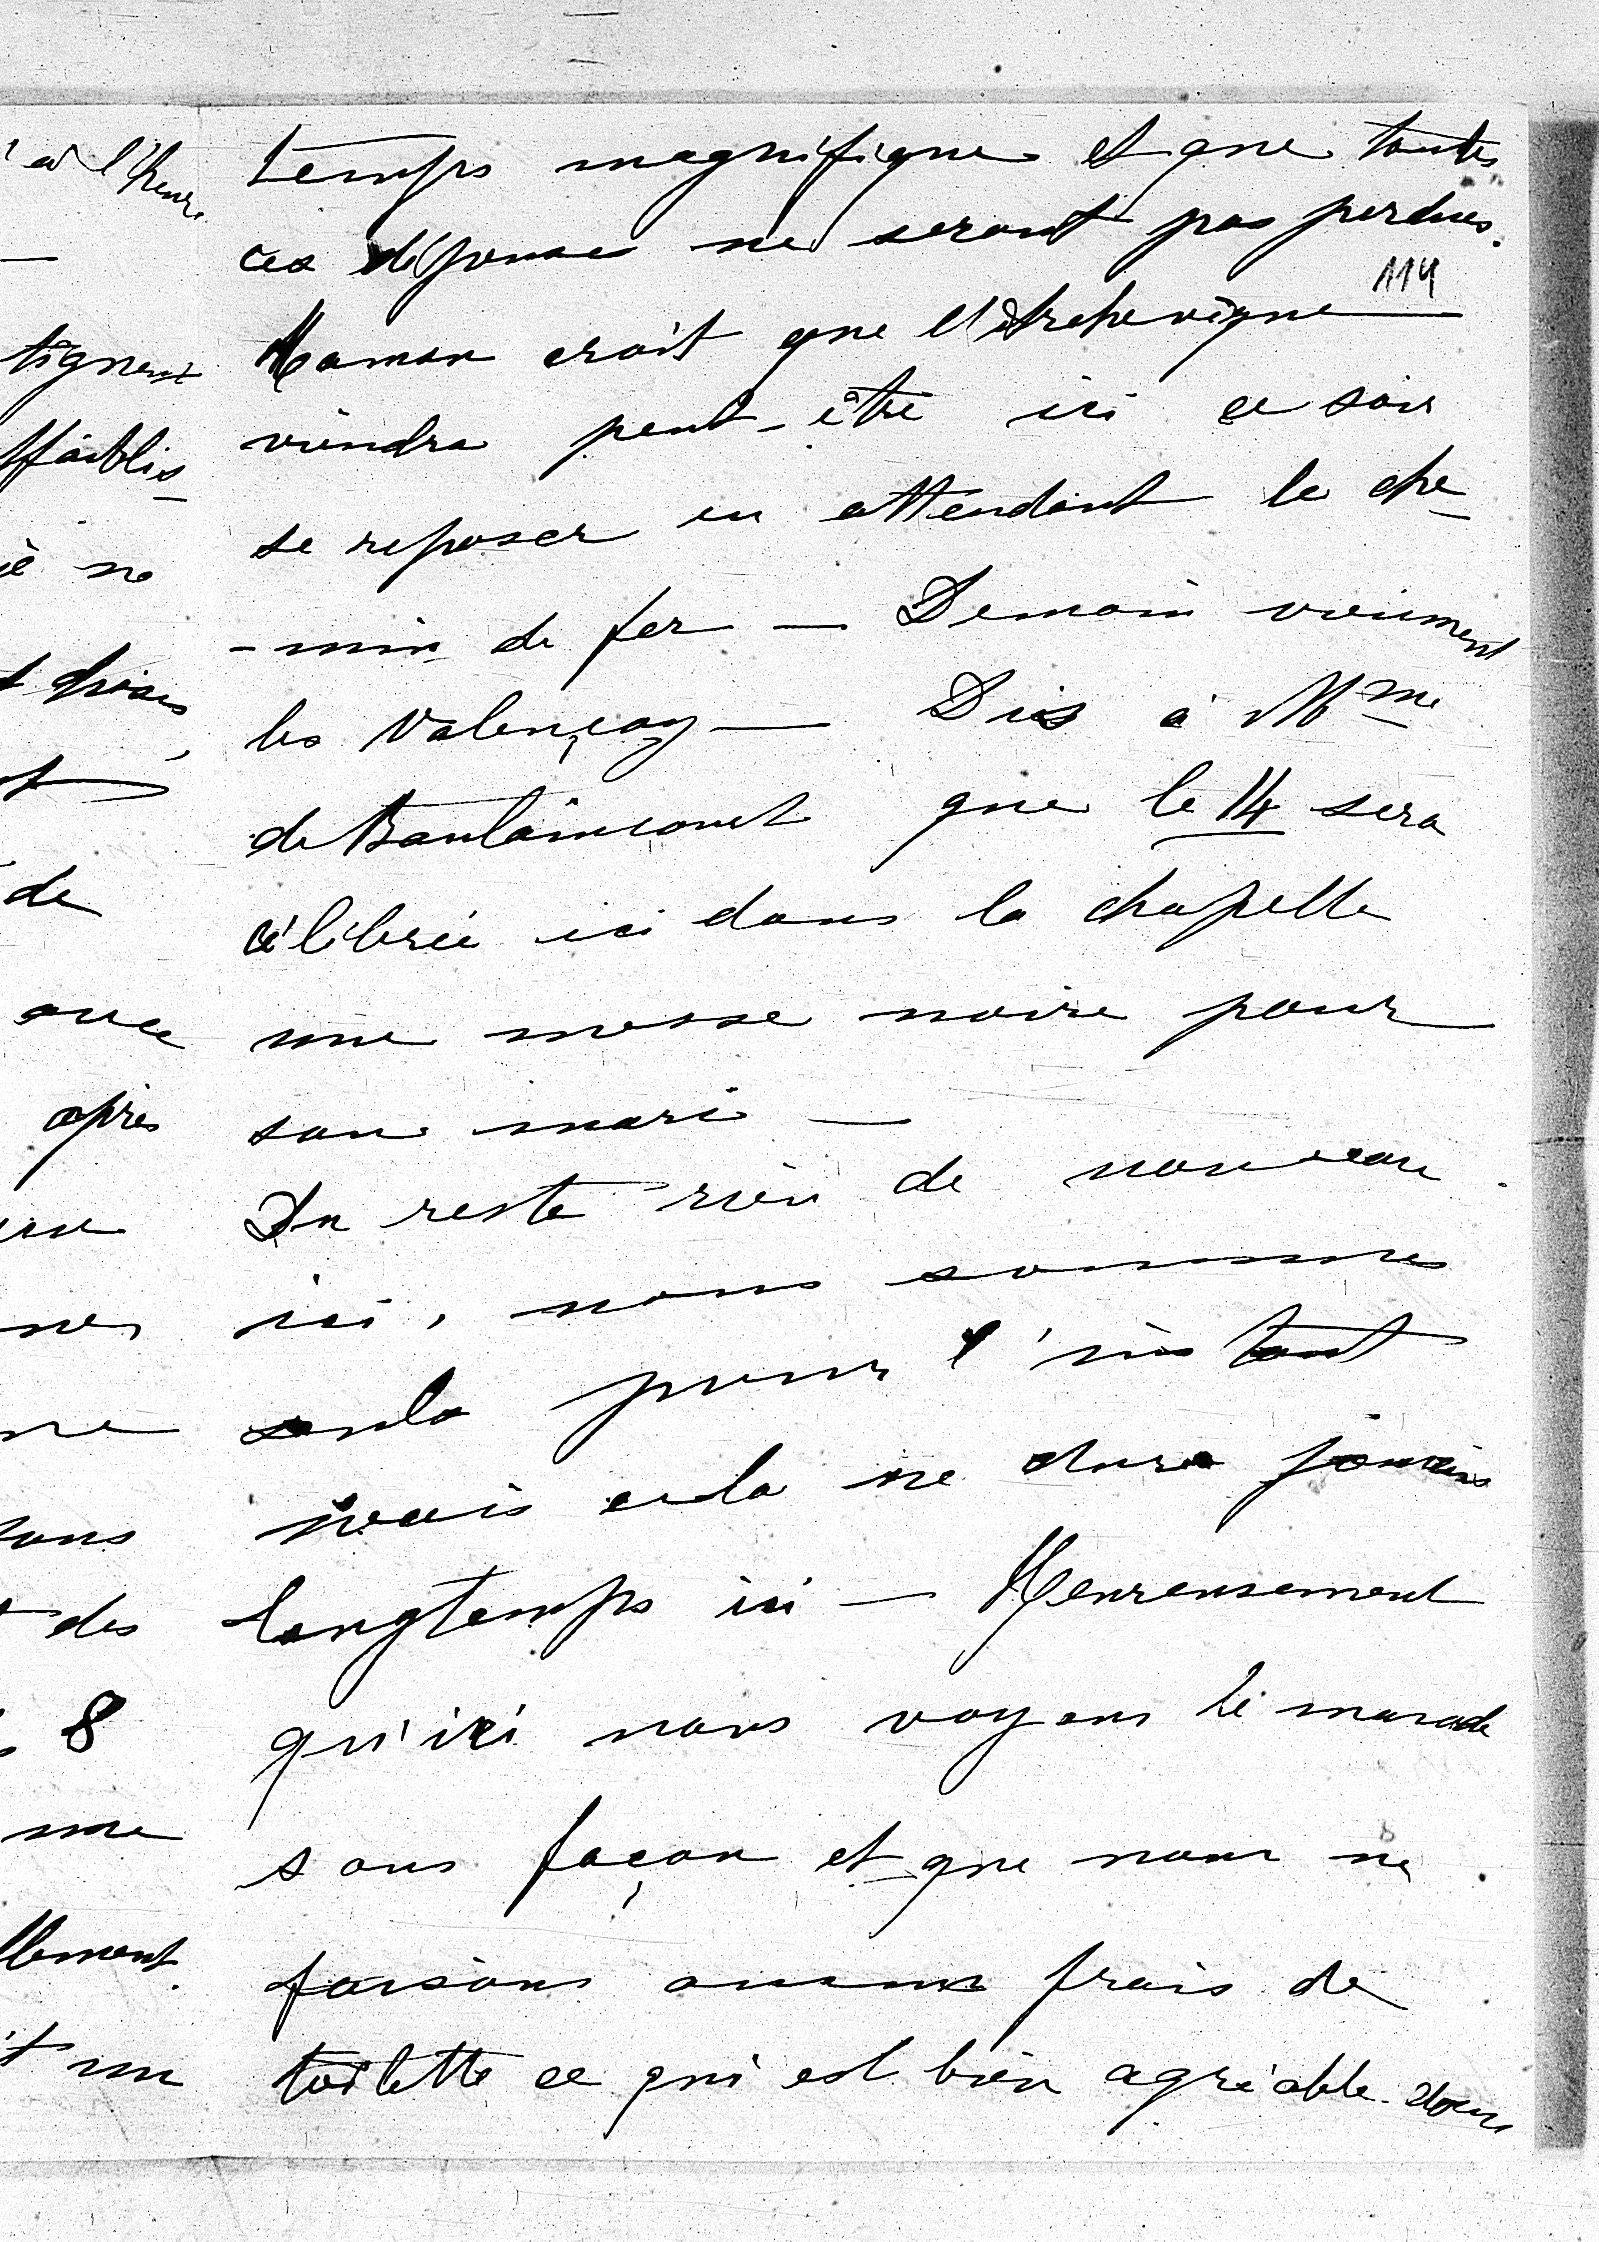 temps magnifique et que toutes
ces dépenses ne seront pas perdues.
114
Maman croit que l'Archevêque
viendra peut-être ici ce soir
se reposer en attendant le che-
-min de fer — Demain viennent
les Valençay — Dis à Mme
de que le 14 sera
célébrée ici dans la chapelle
une messe noire pour
son mari —
Du reste rien de nouveau
ici, nous sommes
seuls pour l'instant
mais cela ne dure jamais
longtemps ici — Heureusement
qu'ici nous voyons le monde
sans façon et que nous ne
faisons aucuns frais de
toilette ce qui est bien agréable dans
à l'heure
tignent
ffaiblis-
de
avec
après
des
8
une
llement
un